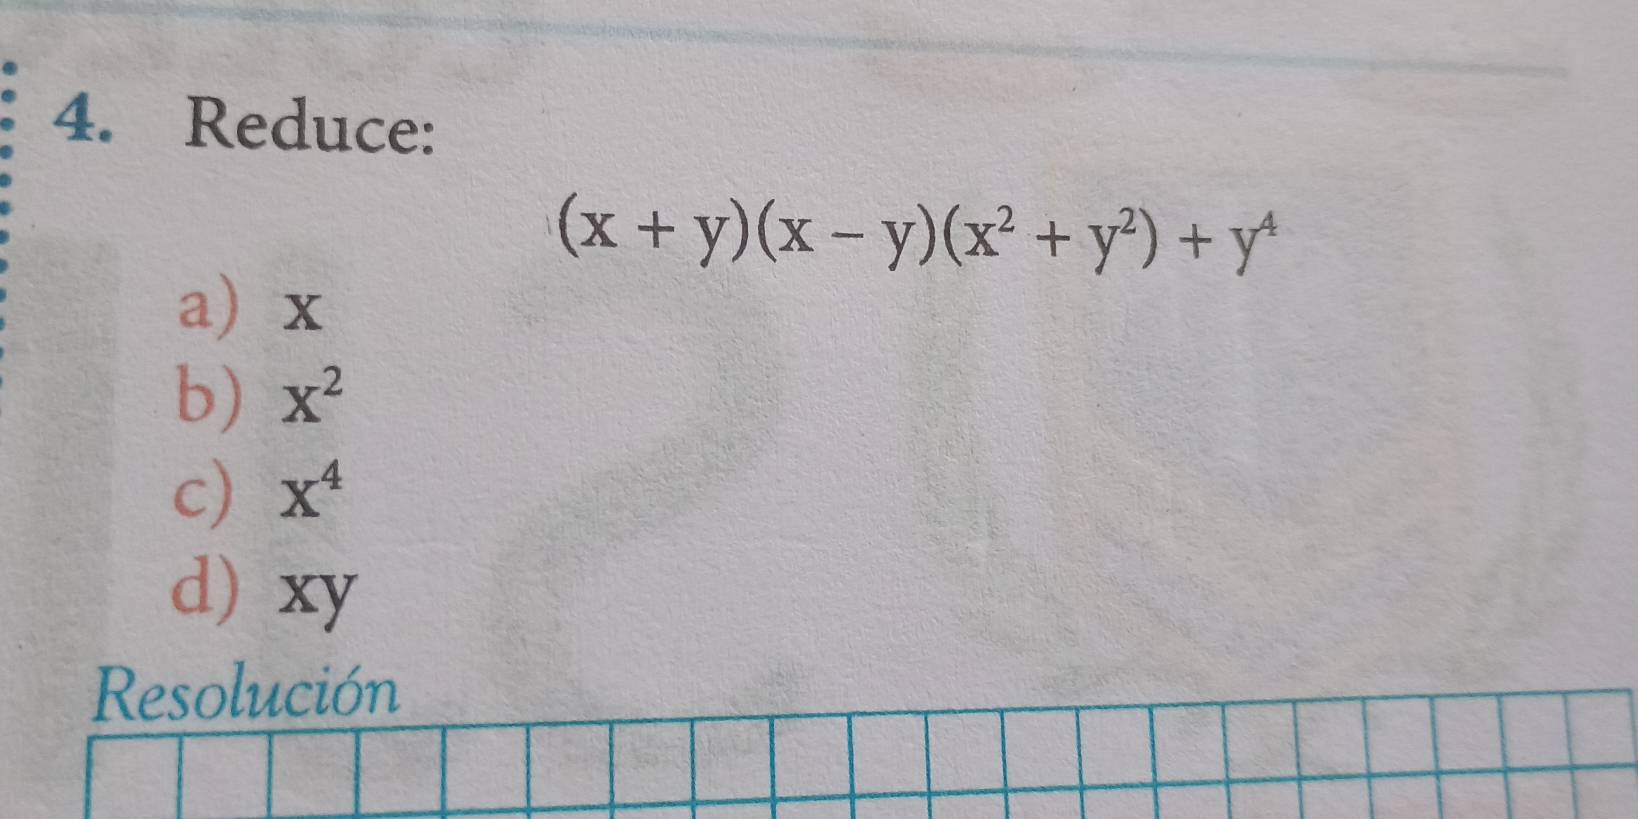 4. Reduce:
(x + y)(x – y)(x² + y²) + y⁴
a) x
b) x²
c) x⁴
d) xy
Resolución